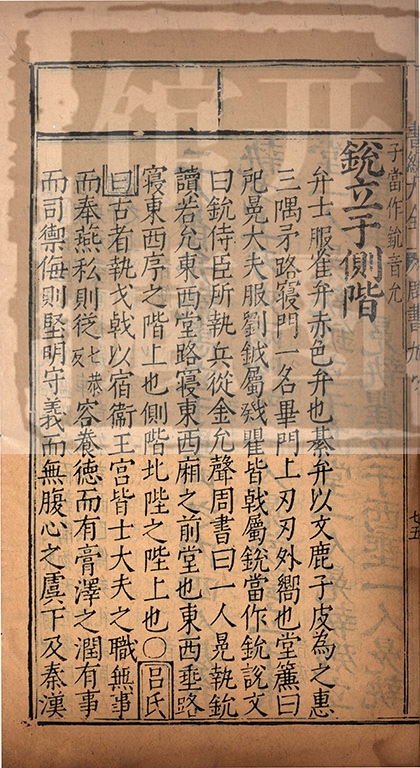 銳立于側階
子當作鈗音允
弁士服雀弁赤色弁也綦弁以文鹿子皮為之惠
三隅矛路寢門一名畢門上刃刃外嚮也堂簾曰
戺冕大夫服劉鉞屬戣瞿皆戟屬銳當作鈗說文
曰鈗侍臣所執兵從金允聲周書曰一人冕執鈗
讀若允東西堂路寢東西廂之前堂也東西垂路
寢東西序之階上也側階北陛之階上也〇呂氏
曰古者執戈戟以宿衛王宮皆士大夫之職無事
而奉燕私則從七恭反容養德而有膏澤之潤有事
而司禦侮則堅明守義而無腹心之虞下及秦漢